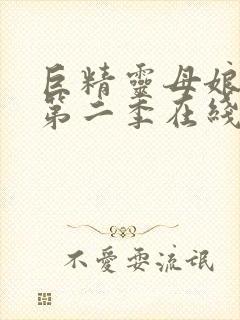 巨精靈母娘
第二季在綫
不愛耍流氓